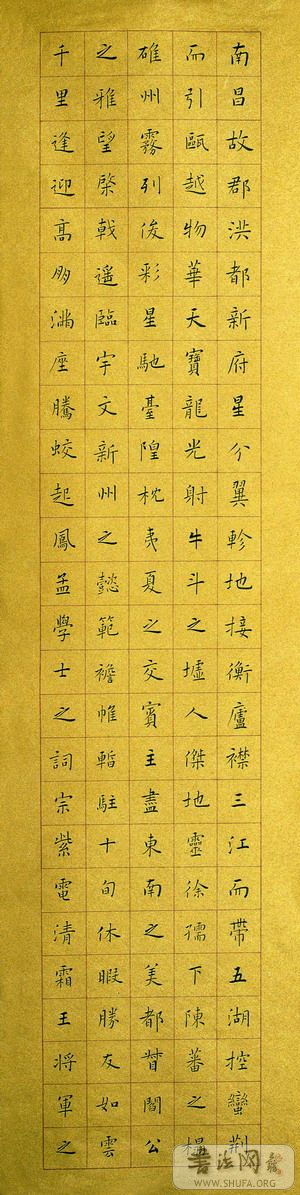 南昌故郡洪都新府星分翼軫地接衡廬襟三江而帶五湖控蠻荆
而引甌越物華天寶龍光射牛斗之墟人傑地靈徐孺下陳蕃之榻
雄州霧列俊彩星馳臺隍枕夷夏之交賓主盡東南之美都督閻公
之雅望棨戟遥臨宇文新州之懿範襜帷暫駐十旬休暇勝友如雲
千里逢迎高朋滿座騰蛟起鳳孟學士之詞宗紫電清霜王將軍之
书法网
WWW.SHUFA.ORG